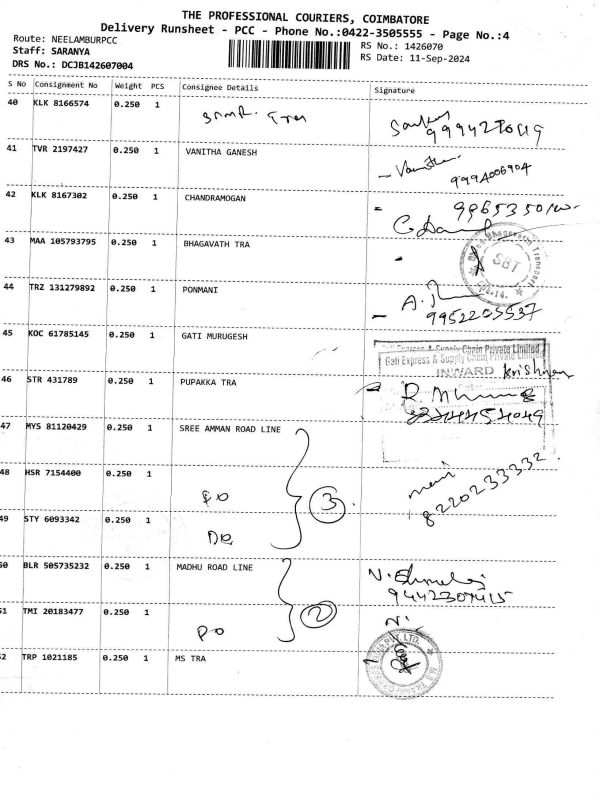 THE PROFESSIONAL COURIERS, COIMBATORE
Delivery Runsheet - PCC - Phone No.:0422-3505555 - Page No.:4
Route: NEELAMBURPCC
Staff: SARANYA
DRS No.: DCJB142607004
RS No.: 1426070
RS Date: 11-Sep-2024
S No Consignment No Weight PCS Consignee Details Signature
40 KLK 8166574 0.250 1
41 TVR 2197427 0.250 1 VANITHA GANESH
9994006904
42 KLK 8167302 0.250 1 CHANDRAMOGAN
43 MAA 105793795 0.250 1 BHAGAVATH TRA
SBT
44 TRZ 131279892 0.250 1 PONMANI
A.
9952205537
45 KOC 61785145 0.250 1 GATI MURUGESH
Gati Express & Supply Chain Private Limited
Gati Express & Supply Chain Private Limited
INWARD Krishnan
46 STR 431789 0.250 1 PUPAKKA TRA
47 MYS 81120429 0.250 1 SREE AMMAN ROAD LINE
48 HSR 7154400 0.250 1 DO
3
mani
8220233332
49 STY 6093342 0.250 1 DO
50 BLR 505735232 0.250 1 MADHU ROAD LINE
N.
9442307415
2
51 TMI 20183477 0.250 1 DO
N.
52 TRP 1021185 0.250 1 MS TRA